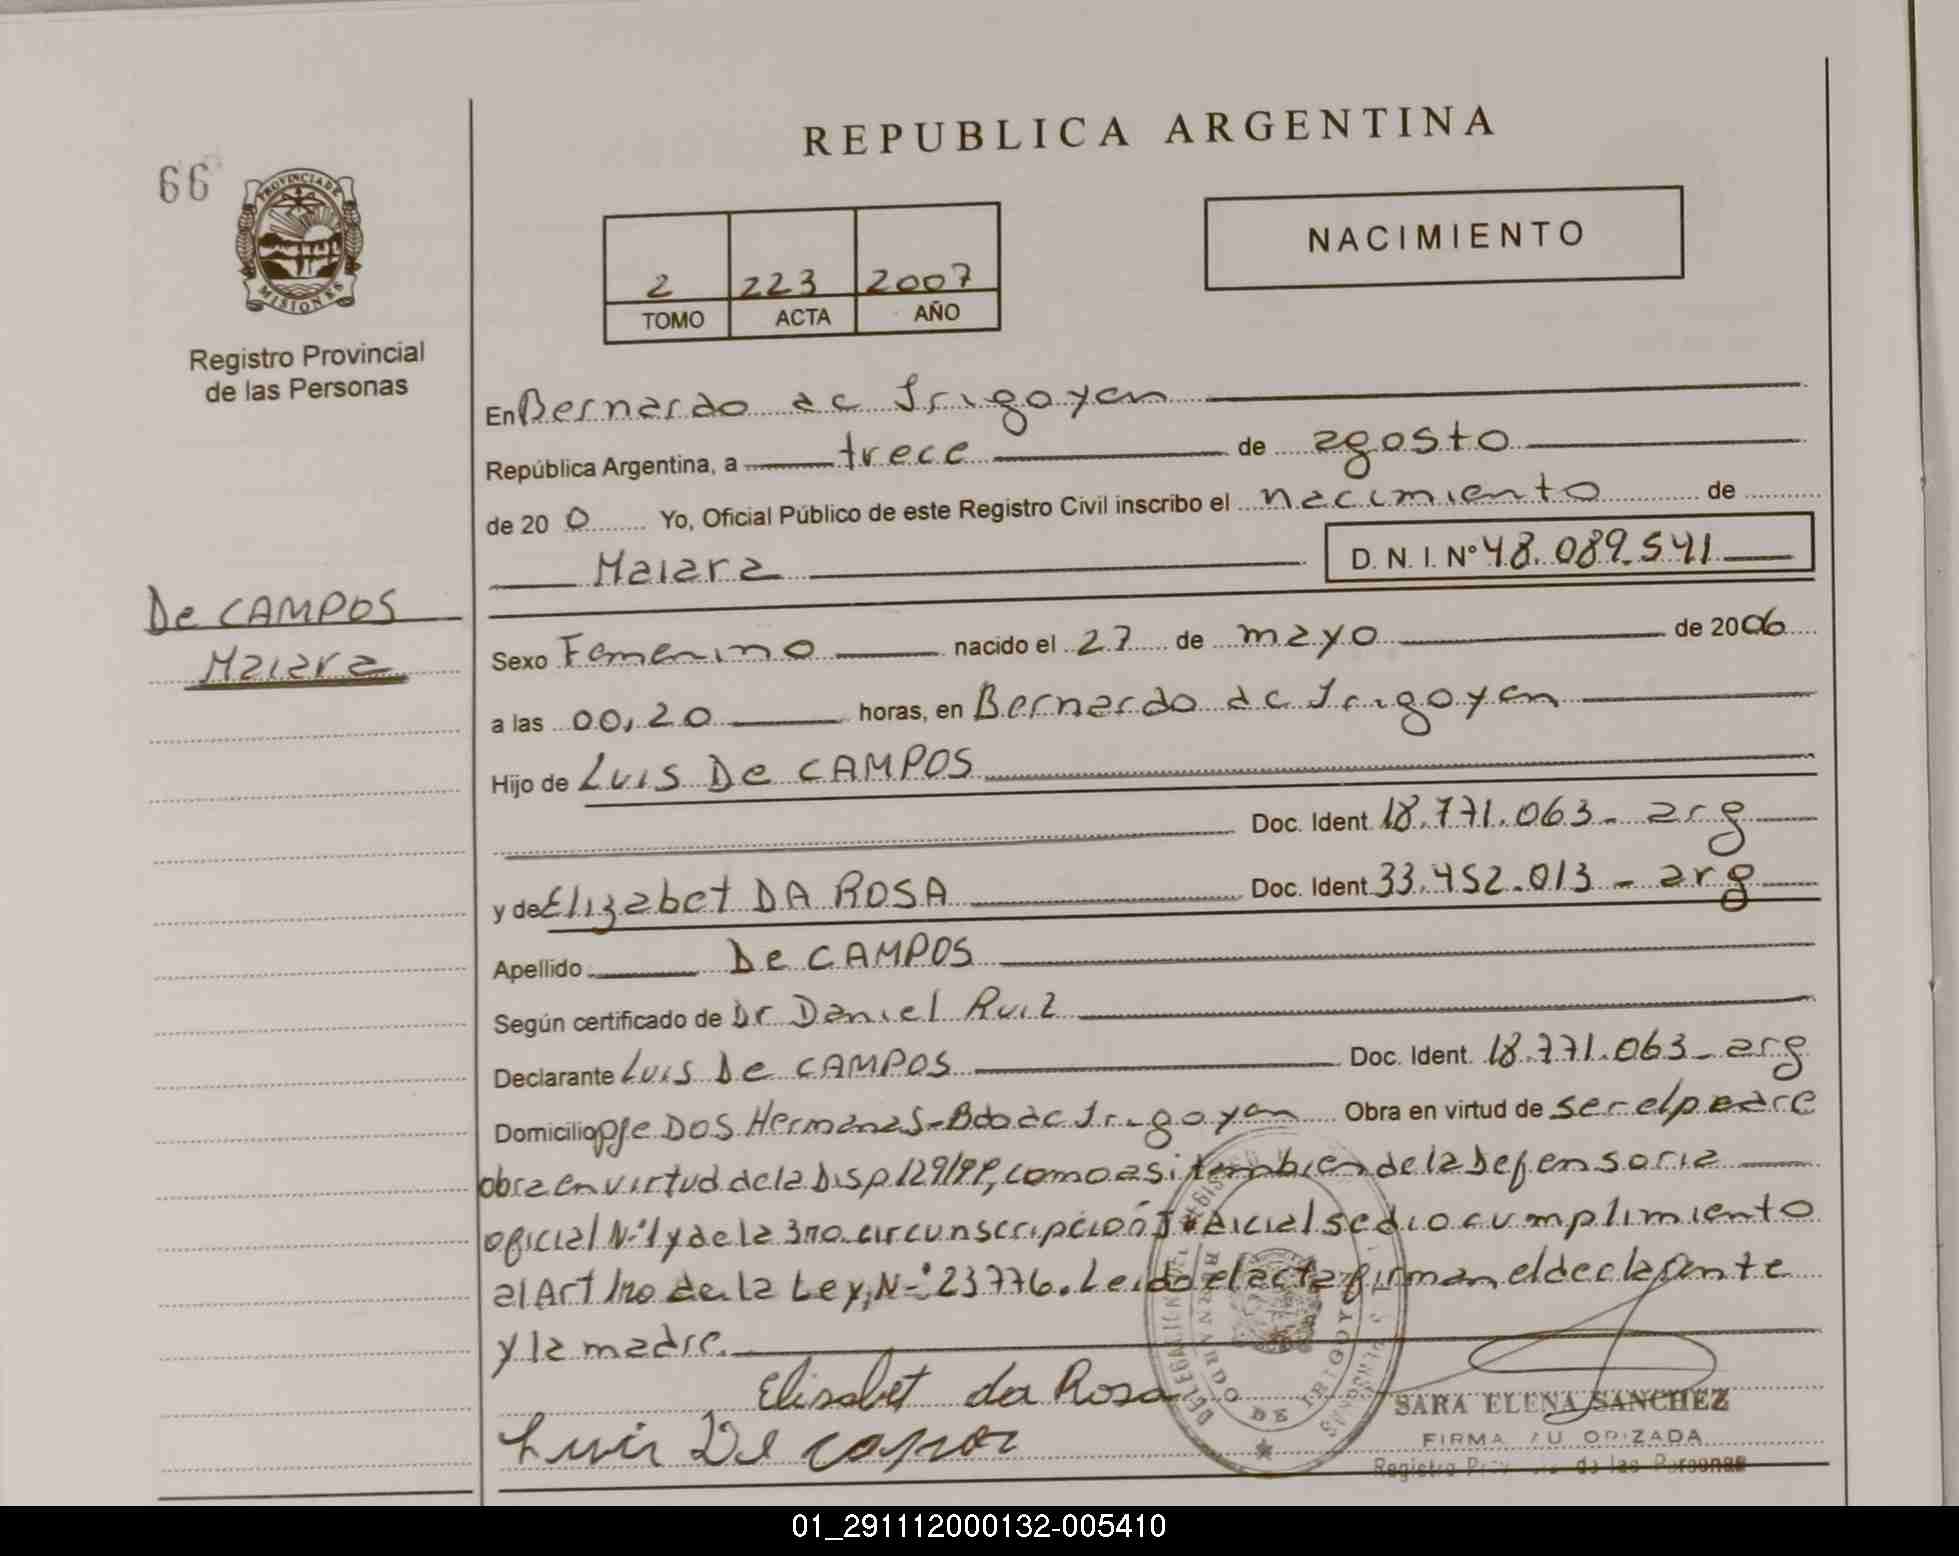 REPUBLICA ARGENTINA
66
PROVINCIA DE
MISIONES
Registro Provincial
de las Personas
NACIMIENTO
2 223 2007
TOMO ACTA AÑO
En Bernardo de Irigoyen
República Argentina, a trece de agosto
de 20 0 Yo, Oficial Público de este Registro Civil inscribo el nacimiento de
Maiara D. N. I. Nº 48.089.541
De CAMPOS
Maiara
Sexo Femenino nacido el 27 de mayo de 2006
a las 00,20 horas, en Bernardo de Irigoyen
Hijo de Luis De CAMPOS
Doc. Ident. 18.771.063 - arg
y de Elizabet DA ROSA Doc. Ident. 33.452.013 - arg
Apellido De CAMPOS
Según certificado de Dr Daniel Ruiz
Declarante Luis De CAMPOS Doc. Ident. 18.771.063 - arg
Domicilio pje Dos Hermanas - Bdo de Irigoyen Obra en virtud de ser el padre
obra en virtud de la Disp 129/99, como asi tambien de la Defensoria
oficial Nº 1 y de la 3ra circunscripción Judicial se dio cumplimiento
al Art 1ro de la Ley, Nº 23776. Leido el acta firman el declarante
y la madre.
Elisabet da Rosa
Luis De campos
BERNARDO DE IRIGOYEN
SARA ELENA SANCHEZ
FIRMA AUTORIZADA
Registro Provincial de las Personas
01_291112000132-005410